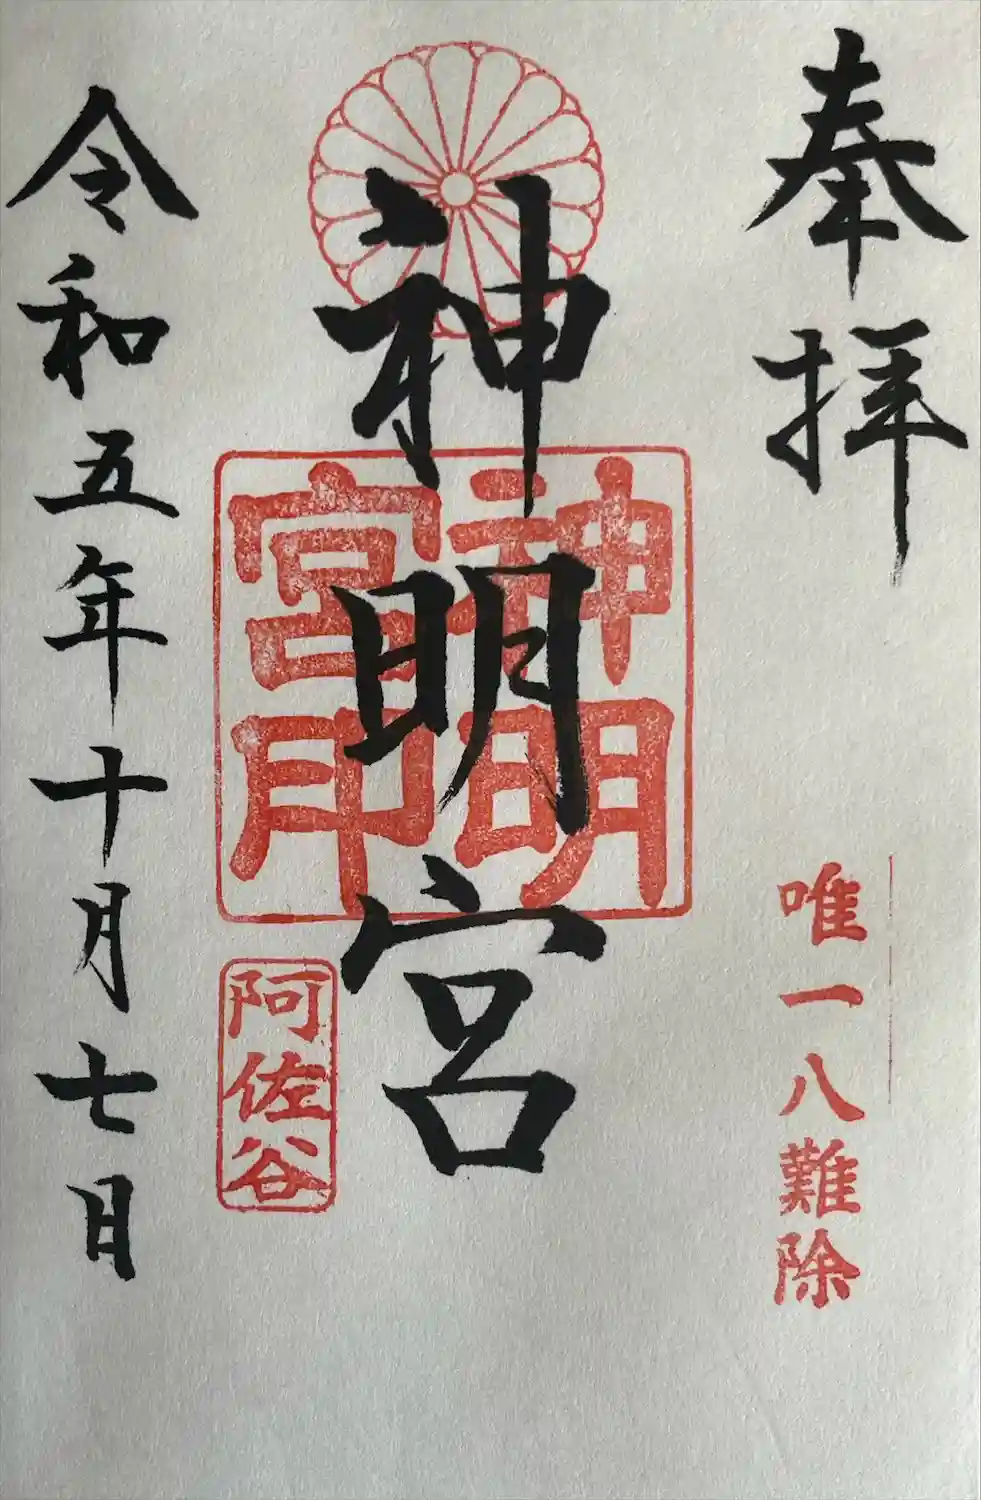 奉拝
唯一八難除
神明宮
神明
宮印
阿佐谷
令和五年十月七日